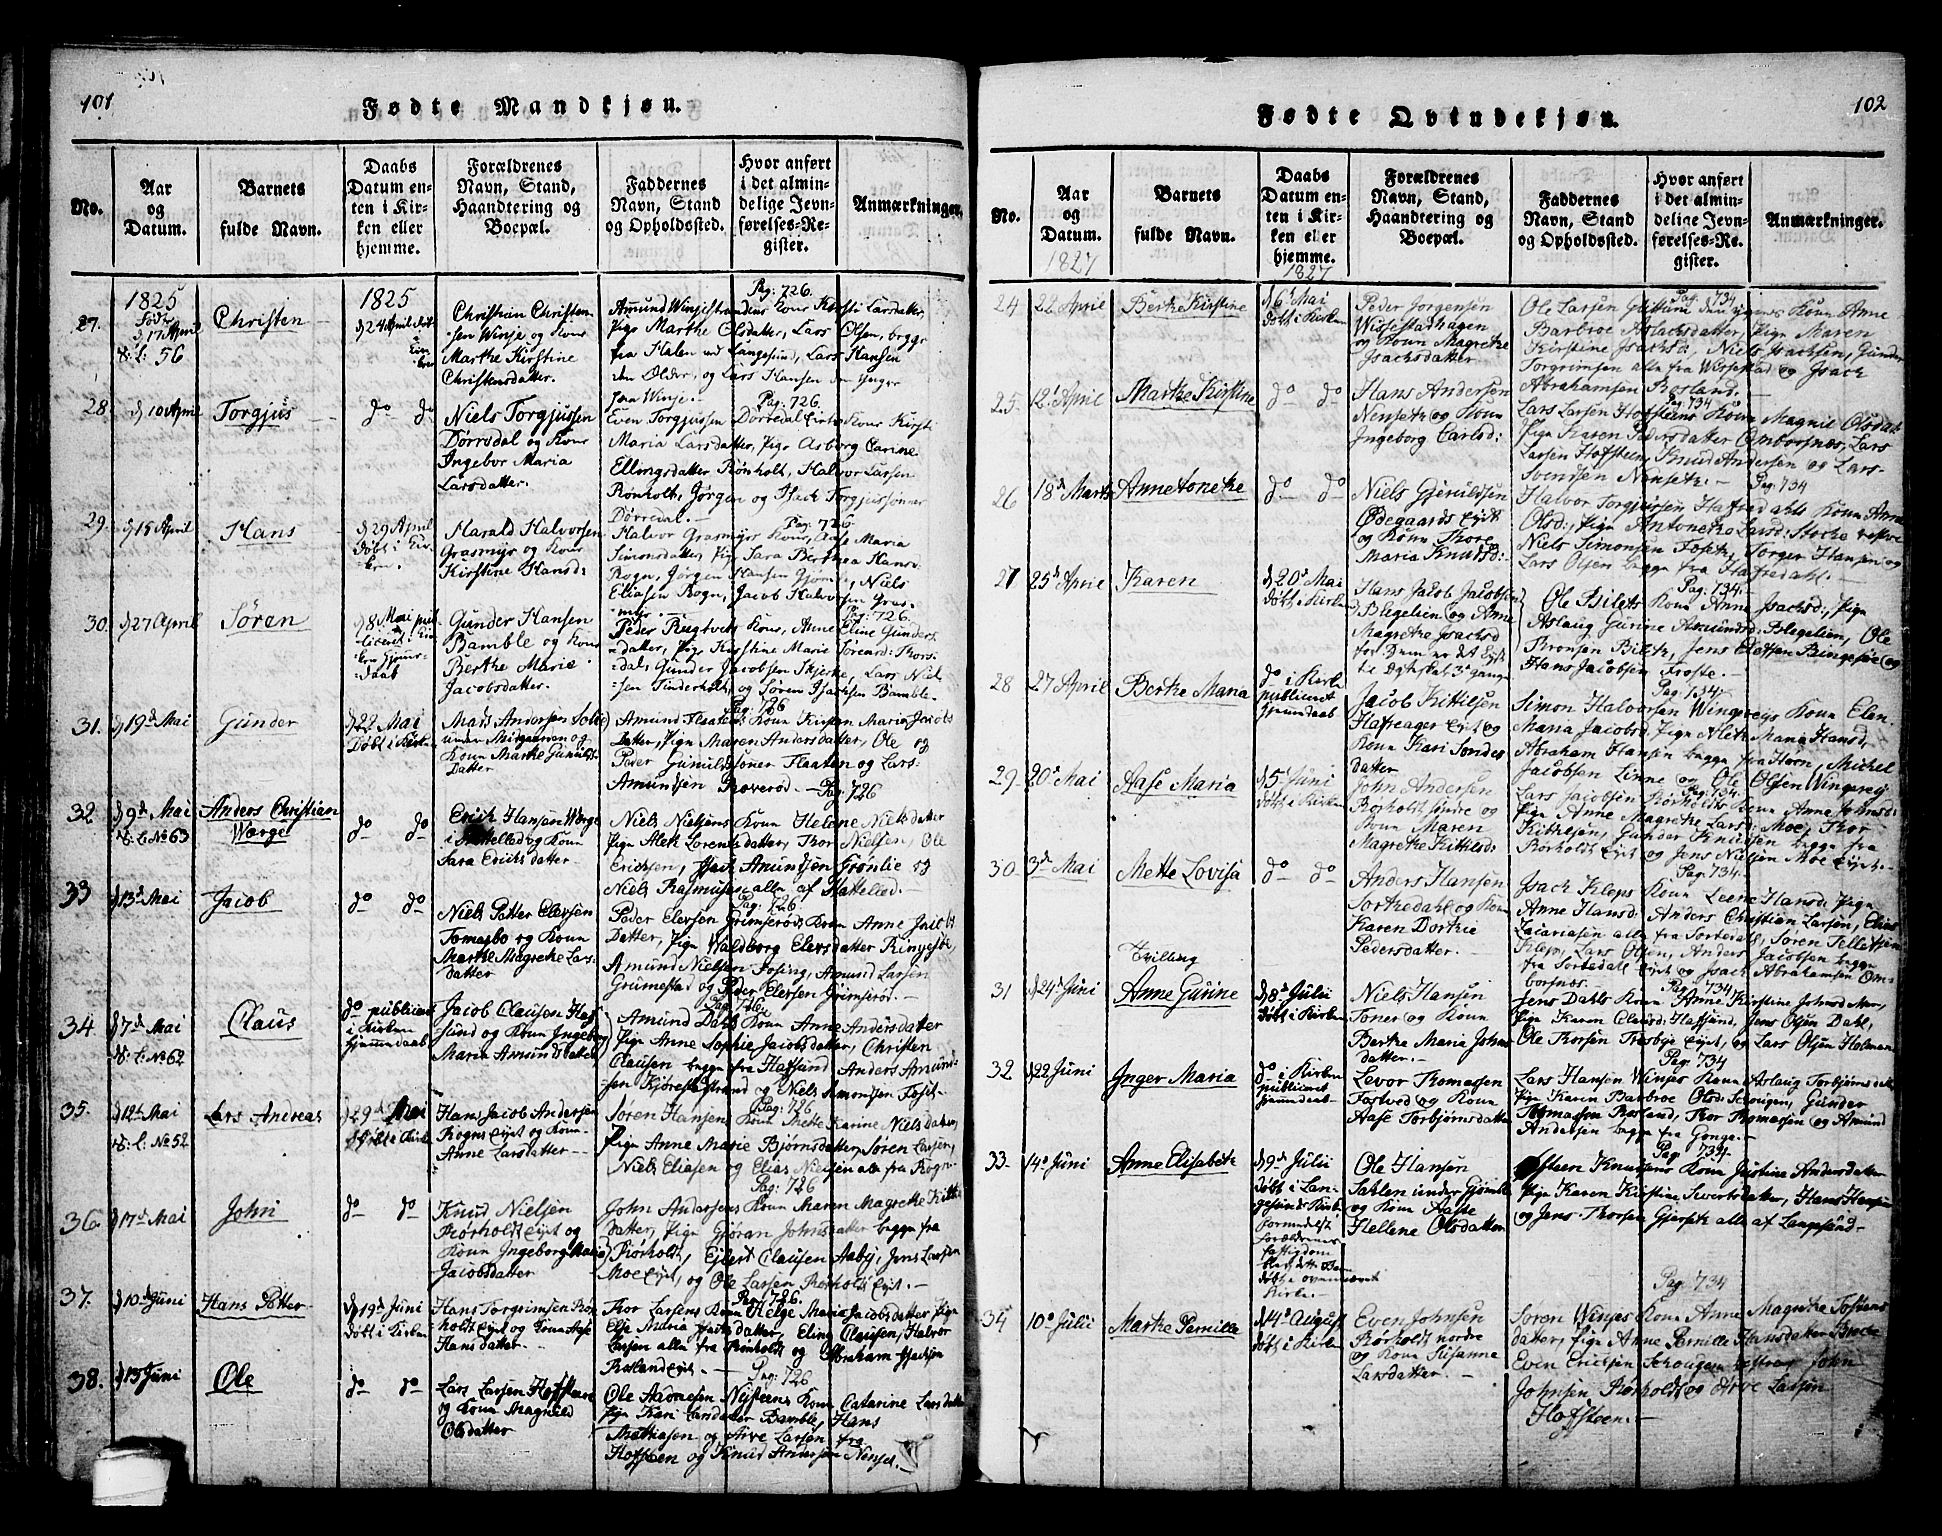 101
Fødte Mandkjøn.
No.
Aar
og
Datum.
Barnets
fulde Navn.
Daabs
Datum en-
ten i Kir-
ken eller
hjemme.
Forældrenes
Navn, Stand,
Haandtering og
Boepæl.
Faddernes
Navn, Stand
og Opholdssted.
Hvor anført
i det almin-
delige Jevn-
førelses-Re-
gister.
Anmærkninger.
27.
1825
Født
d 17 April
56
Christen
1825
d 24 April
Christian Christen-
sen Winje og Kone
Marthe Kirstine
Christensdatter.
Pag: 726.
Pige Marthe Olsdatter, Lars Olsen, begge
fra Halen ved Langesund, Lars Hansen
den Ælder, og Lars Hansen den Yngre
fra Winje.
28.
d 10 April
Torgjus
do do
Niels Torgjussen
Dørredal og Kone
Ingebor Maria
Larsdatter.
Pag: 726.
Even Torgjussen Dørredal
Maria Larsdatter, Pige Asborg Carine
Ellingsdatter Rønholt, Halvor Larsen
Rønholt, Jørgen og Isach Torgjussønner
Dørredal.
29.
d 15 April
Hans
d 29 April
Døbt i Kir-
ken.
Harald Halvorsen
Grasmyr og Kone
Kirstine Hansd:
Pag: 726.
Halvor Grasmyrs Kone, Aase Maria
Simonsdatter, Pige Sara Berthea Hans-
Rogn, Jørgen Hansen Gjømle, Niels
Eliasen Rogn, Jacob Halvorsen Gras-
myr.
30.
d 27 April
Søren
d 8 Mai
Gunder Hansen
Bamble og Kone
Berthe Marie
Jacobsdatter.
Pag: 726.
Peder Rugtvets Kone, Anne Eline Gunders-
datter, Pige Kirstine Marie Sørensd: Thors-
dal, Gunder Jacobsen Skjerke, Lars Niel-
sen Tinderholt, og Søren Isachsen Bamble.
31.
d 19d Mai
Gunder
d 22 Mai
Døbt i Kirken
Mads Andersen
Kone Marthe Gunulds
Datter
Pag: 726
Amund Flaatens Kone Kirsten Maria Jacobs
Datter, Pige Maren Andersdatter, Ole og
Peder Gunuldsønner Flaaten og Lars
Amundsen Roverød.
32.
d 9d Mai
No 63
Anders Christian
Wærge
do do
Erich Hansen Wærge
i Hatteled og Kone
Sara Erichsdatter
Pag: 726
Niels Nielsens Kone Helene Nielsdatter
Pige Aleth Lorensdatter, Thor Nielsen, Ole
Erichsen, Isach Amundsen Grønlie og
Niels Rasmusen alle af Hatteled.
33
d 13d Mai
Jacob
do do
Niels Petter Elevsen
Tomasbo og Kone
Marthe Magrethe Lars-
datter
Pag: 726.
Peder Elevsen Grimserøds Kone Anne Jacobs
Datter, Pige Waldborg Elevsdatter
Amund Nielsen Fosing, Amund Larsen
Grumestad og Peder Elevsen Grimserød.
34.
d 7d Mai
No 62
Claus
do publiceret
i Kirken
hjemmedaab
Jacob Clausen Haf-
sund og Kone Ingeborg
Maria Amunds Datter
Pag: 726
Amund Dahls Kone Anne Andersdatter
Pige Anne Sophie Jacobsdatter, Christen
Clausen begge fra Hafsund Anders Amund-
sen Kjørestrand og Niels Simonsen Fosse.
35.
d 12d Mai
No 52
Lars Andreas
d 29d Mai
Døbt i Kirken
Hans Jacob Andersen
Rogns Eyet og Kone
Anne Larsdatter
Pag: 726
Søren Hansens Kone Mette Karine Nielsdatter,
Pige Anne Marie Bjørnsdatter, Søren Larsen,
Niels Eliasen og Elias Nielsen alle fra Rogn.
36.
d 17d Mai
John
do do
Knud Nielsen
Rørholt Eyet og
Kone Ingeborg Maria
Jacobsdatter
Pag: 726
John Andersens Kone Maren Magrethe Kittils
Datter, Pige Gjøran Johnsdatter begge fra
Rørholt, Ejlert Clausen Aaby, Jens Larsen
Moe Eyet, og Ole Larsen Rørholt Eyet.
37.
d 10d Juni
Hans Petter
d 19d Juni
Døbt i Kirken
Hans Torgrimsen Røn-
holt Eyet og Kone Aase
Hansdatter.
Pag: 726.
Thor Larsens Kone Helge Maria Jacobsdatter Pige
Else Maria Isaksdatter, Eling Clausen, Halvor
Larsen alle fra Rønholdt og Abraham Isachsen
Roslandeyet.
38.
d 13 Juni
Ole
do do
Lars Larsen Hofsteen
og Kone Magnild
Olsdatter
Pag: 726
Ole Aadnesen Nysteens Kone Catarine Larsdatter
Pige Kari Larsdatter Bamble, Hans
Mathiasen og Arve Larsen fra
Hofsteen og Knud Andersen Nenset.
102
Fødte Qvindekjøn.
No.
Aar
og
Datum.
1827
Barnets
fulde Navn.
Daabs
Datum en-
ten i Kir-
ken eller
hjemme.
1827
Forældrenes
Navn, Stand,
Haandtering og
Boepæl.
Faddernes
Navn, Stand
og Opholdssted.
Hvor anført
i det almin-
delige Jevn-
førelses-Re-
gister.
Anmærkninger.
24
22 April
Berthe Kirstine
d 6t Mai
døbt i Kirken
Peder Jørgensen
Wissestadhagen
og Konen Magrethe
Isachsdatter
Pag: 734
Barbroe Aslachsdatter, Pige Maren
Kirstine Isachsd, Niels Isachsen, Gunder
Torgrimsen alle fra Wissestad og Isach
Abrahamsen Rosland.
25.
12t April
Marthe Kirstine
do do
Hans Andersen
Nenseth og Kone
Ingeborg Carlsd:
Pag: 734
Lars Larsen Hofsteens Kone Magnil Olsdatt
Pige Karen Pedersdatter Omborsnæs, Lars
Larsen Hofsteen, Knud Andersen og Lars
Svendsen Nenseth.
26
18d Marts
Anne Tonethe
do do
Niels Gjeruldsen
Ødegaards Eyet
og Kone Thore
Maria Knudsd:
Pag: 734
Halvor Torgjussen Hafredahls Kone Anne
Olsd:, Pige Antonethe Larsd: Stocke vestre
Niels Simonsen Foseth, Torger Hansen og
Lars Olsen begge fra Hafredahl.
27
25d April
Karen
d 20d Mai
døbt i Kirken
Hans Jacob Jacobsen
Blegelien og Anne
Magrethe Isachsd
for Dem er det Eyet
Pag: 734.
Ole Bileths Kone Anne Isachsd:, Pige
Aslaug Gurine Amundsd: Blegelien, Ole
Bronsen Bileth, Jens Olessen Bingesøe og
Hans Jacobsen Troste.
28
27 April
Berthe Maria
do i Kirken
publiceret
hjemmdaab
Jacob Kittilsen
Hafsager Eyet og
Kone Kari Torders
datter
Pag: 734
Simon Halvorsen Wingereis Kone Elen
Maria Jacobsd, Pige Aleth Maria Hansd,
Abraham Hansen begge fra Horn, Michel
Jacobsen Linne og Ole Olsen Wingereis
29
20d Mai
Aase Maria
d 5t Juni
døbt i Kirken
John Andersen
Rørholt søndre og
Kone Maren
Magrethe Kittilsd:
Pag: 734.
Lars Jacobsen Rørholts Kone Anne Johnsd:
Pige Anne Magrethe Larsd: Moe, Thor
Kittilsen, Gunder Knudsen begge fra
Rørholt Eyet og Jens Nielsen Moe Eyet.
30
3d Mai
Mette Lovisa
do do
Anders Hansen
Torkedahl og Kone
Karen Dorthe
Pedersdatter.
Pag: 734.
Isach Kleps Kone Leene Hansd, Pige
Anne Hansd: Anders Christian Larsen, Elias
Zacariasen alle fra Tortedahl, Søren Tellefsen
Klep, Lars Olsen, Anders Jacobsen begge
fra Tortedal Eyet og Isach Abrahamsen Om-
borsnæs.
31
d 24d Juni
Tvilling
Anne Gurine
d 8d Julii
døbt i Kirken
Niels Hansen
Toner og Kone
Berthe Maria Johns
datter.
Pag: 734
Jens Dahls Kone Anne Kirstine Johnsdatter,
Pige Karen Clausd: Hafsund, Jens Olsen Dahl,
Ole Thorsen Trosbye Eyet, og Lars Olsen Holman.
32
d 22 Juni
Inger Maria
do i Kirken
publiceret
hjemmedaab
Levor Thomasen
Fostved og Kone
Aase Torbjørnsdatter
Pag: 734
Lars Hansen Winjes Kone Aslaug Torbjørnsdatt
Pige Karen Barbroe Olsd: Schougen, Gunder
Thomassen Rosland, Thor Thomassen og Amund
Andersen begge fra Gonge.
33.
14d Juni
Anne Elisabeth
d 9d Julii
døbt i Lan-
gesunds Kirke
formedelst
Forældrenes
Fattigdom
Ole Hansen
Sahlen under Gjømle
og Kone Aase
Hellene Olsdatter
Pag: 734.
Ofsteen Knudsens Kone Justine Andersdatter
Pige Karen Kirstine Sivertsdatter, Hans Hansen
og Jens Thorsen Gjerseth alle af Langesund
34
10d Julii
Marthe Pernille
d 14d August
døbt i Kirken
Even Johnsen
Rørholdt nordre
og Kone Susanne
Larsdatter.
Pag: 734
Søren Winjes Kone Anne Magrethe Tostens
datter, Pige Anne Pernille Hansdatter
Even Erichsen Schougen
Johnsen Rørholdt og Arve Larsen
Hofsteen.